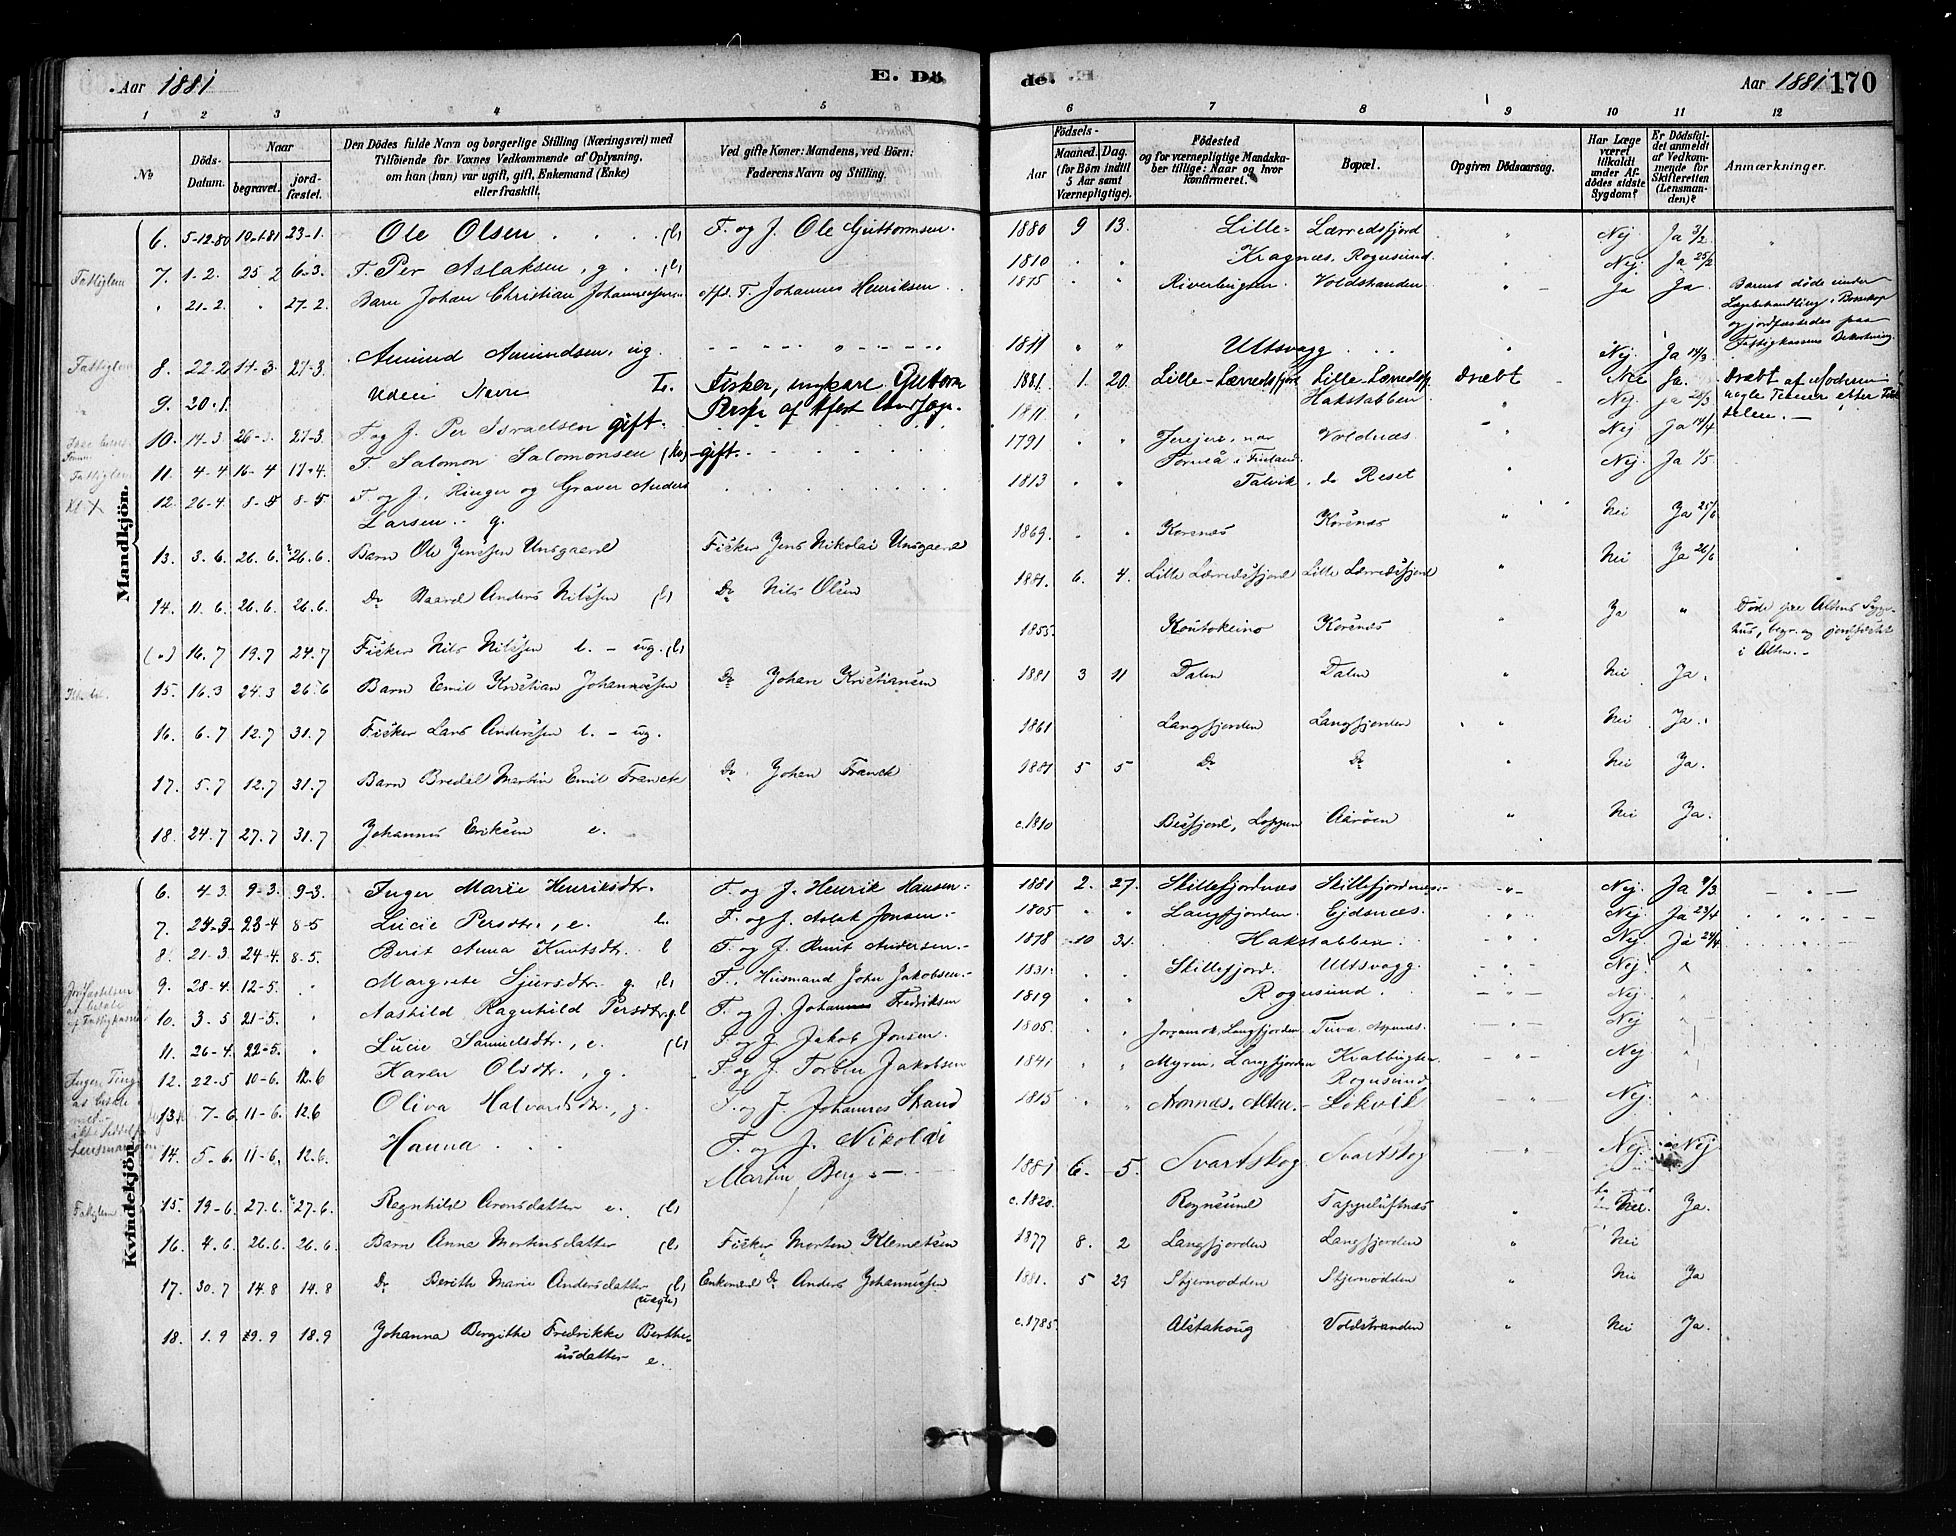 Aar 1881
E. Dö
de.
Aar 1881
170
1 2 3 4 5 6 7 8 9 10 11 12
No
Döds-Datum.
Naar
begravet.
jord-fæstet.
Den Dödes fulde Navn og borgerlige Stilling (Næringsvei) med
Tilföiende for Voxnes Vedkommende af Oplysning,
om han (hun) var ugift, gift, Enkemand (Enke)
eller fraskilt.
Ved gifte Koner: Mandens, ved Börn:
Faderens Navn og Stilling.
Födsels-
Aar
Maaned. Dag.
(for Börn indtil
5 Aar samt
Værnepligtige).
Födested
og for værnepligtige Mandska-
ber tillige: Naar og hvor
konfirmeret.
Bopæl.
Opgiven Dödsaarsag.
Har Læge
været
tilkaldt
under Af-
dödes sidste
Sygdom?
Er Dödsfal-
det anmeldt
af Vedkom-
mende for
Skifteretten
(Lensman-
den)?
Anmærkninger.
Mandkjön.
6. 5-12-80 19-1-81 23-1. Ole Olsen (l) F. og J. Ole Guttormsen. 1880 9 13. Lille-Lærredsfjord " Nej Ja 3/2 "
Fattiglem 7. 1-2. 25-2 6-3. F. Per Aslaksen, g. (l) 1810 " " Kragnæs, Rognsund " Nej Ja 25/2
" 21-2. " 27-2. Barn Johan Christian Johannessen Afd. F. Johannes Henriksen 1875 Riverbugten Voldstranden " Ja Ja Barnet döde under
Lægebehandling i Bossekop
og jordfæstedes paa
Fattigkassens Bekostning.
Fattiglem 8. 22-2 14-3. 27-3. Amund Amundsen, ug. 1811 " " Ultsvagg " Nej. Ja 14/3.
9. 20-1. Uden Navn L. Fisker, ungkarl Guttorm 1881. 1. 20. Lille-Lærredsfjord Lille-Lærredsfj. Dræbt Nei Ja. Dræbt af Moderen
10. 14-3. 26-3. 27-3. F. og J. Per Israelsen gift. 1811 Hakstabben " Nej. Ja 28/3
11. 4-4 16-4 17-4. F. Salomon Salomonsen (kv) gift. 1791 " " Torneå i Finland. Voldnæs Nej Ja 14/4
Fattiglem
12. 26-4. 8-5 8-5 F. og J., Ringer og Graver Anders
Larsen g. 1813 " " Talvik. do Reset " Nej Ja 1/5.
13. 3. 6. 26. 6. 26. 6. Barn Ole Jenssen Unsgaard Fisker Jens Nikolai Unsgaard 1869. " " Korsnæs Korsnæs " Nei Ja 25/6
14. 11. 6. 26. 6. 26. 6. Do Anders Nilssen (l) Do Nils Olsen 1881. 6. 4. Lille Lærredsfjord Lille Lærredsfjord " Nei Ja 26/6
(") 16. 7 19. 7 24. 7 Fisker Nils Nilssen l. - ug. (l) 1855. Koutokeino Korsnæs Ja " Döde paa Altens Syge-
hus, begr. og jordfæstet
i Alten.
15. 16. 3 24. 3 26. 6 Barn Emil Kristian Johannessen Do Johan Kristiansen 1881 3 11 Dalen Dalen " Nei Ja.
16. 6. 7 12. 7 31. 7 Fisker Lars Anderssen l. - ug. 1861 Langfjorden Langfjorden " Nei Ja.
17. 5. 7 12. 7 31. 7 Barn Bredal Martin Emil Franck Do Johan Franck 1881 5 5 Do Do " Nei Ja.
18. 24. 7 27. 7 31. 7 Johannes Eriksen e. c. 1810 Besfjord, Loppen Aaröen " Nei Ja.
Kvindekjön.
6. 4. 3. 9-3. 9-3. Inger Marie Henriksdtr. F. og J. Henrik Hansen. 1881 2. 27. Skillefjordnæs Skillefjordnæs. -"- Nej. Ja 9/3
7. 23-3. 23-4 8-5 Lucie Persdtr., e. l. F. og J. Aslak Jonsen. 1805 " " Langfjorden. Ejdsnæs. " Nej Ja 23/4
8. 21-3 24-4. 8-5. Berit Anna Knutsdtr. l F. og J. Knut Andersen. 1878 10 31. Hakstabben. " Nej Ja 24/4
9. 28-4. 12-5. " Margrete Sjursdtr. g. (l) F., Husmand John Jakobsen. 1831. " " Skillefjord. Ultsvagg. " Nej. "
10. 3. 5 21-5. " Aashild Ragnhild Persdtr. g l F. og J. Johannes Fredriksen 1819 " " Rognsund. -"- Nej. "
11. 26-4. 22-5. " Lucie Samuelsdtr., e. (l) F. og J. Jakob Jonsen. 1806. " " Langfjorden. -"- Nej "
12. 22-5 10-6. 12. 6 Karen Olsdtr., g. F. og J. Torben Jakobsen 1841 " " Myren, Langfjorden Rognsund -"- Nej
13. 7-6. 11-6. 12. 6 Oliva Halvardsdtr., g. F. og J. Johannes Strand 1815 " " Aronnæs, Alten. Lökvik -"- Nej.
14. 5-6. 11-6. 12. 6. Hanna F. og J. Nikolai
Martin Berg 1881 6. 5. Svartskog Svartskog -"- Nej. Nej
Fattiglem 15. 19-6. 27. 6. 27. 6. Regnhild Aronsdatter e. (l) c. 1820. Rognsund Tappeluftnæs " Nei. Ja.
16. 4. 6. 26. 6. 26. 6. Barn Anne Mortensdatter (l) Fisker Morten Klemetsen 1877 8. 2 Langfjorden Langfjorden " Nei
17. 30. 7 14. 8 14. 8 Do Berith Marie Andersdatter (l)
(uægte) Enkemand Do Anders Johannessen 1881. 5 29 Stjernodden Stjernodden " Nei Ja
18. 1. 9 9. 9 18. 9 Johanna Bergithe Fredrikke Berthe-
usdatter e. c. 1785. Alstahoug Voldstranden " Nei Ja.